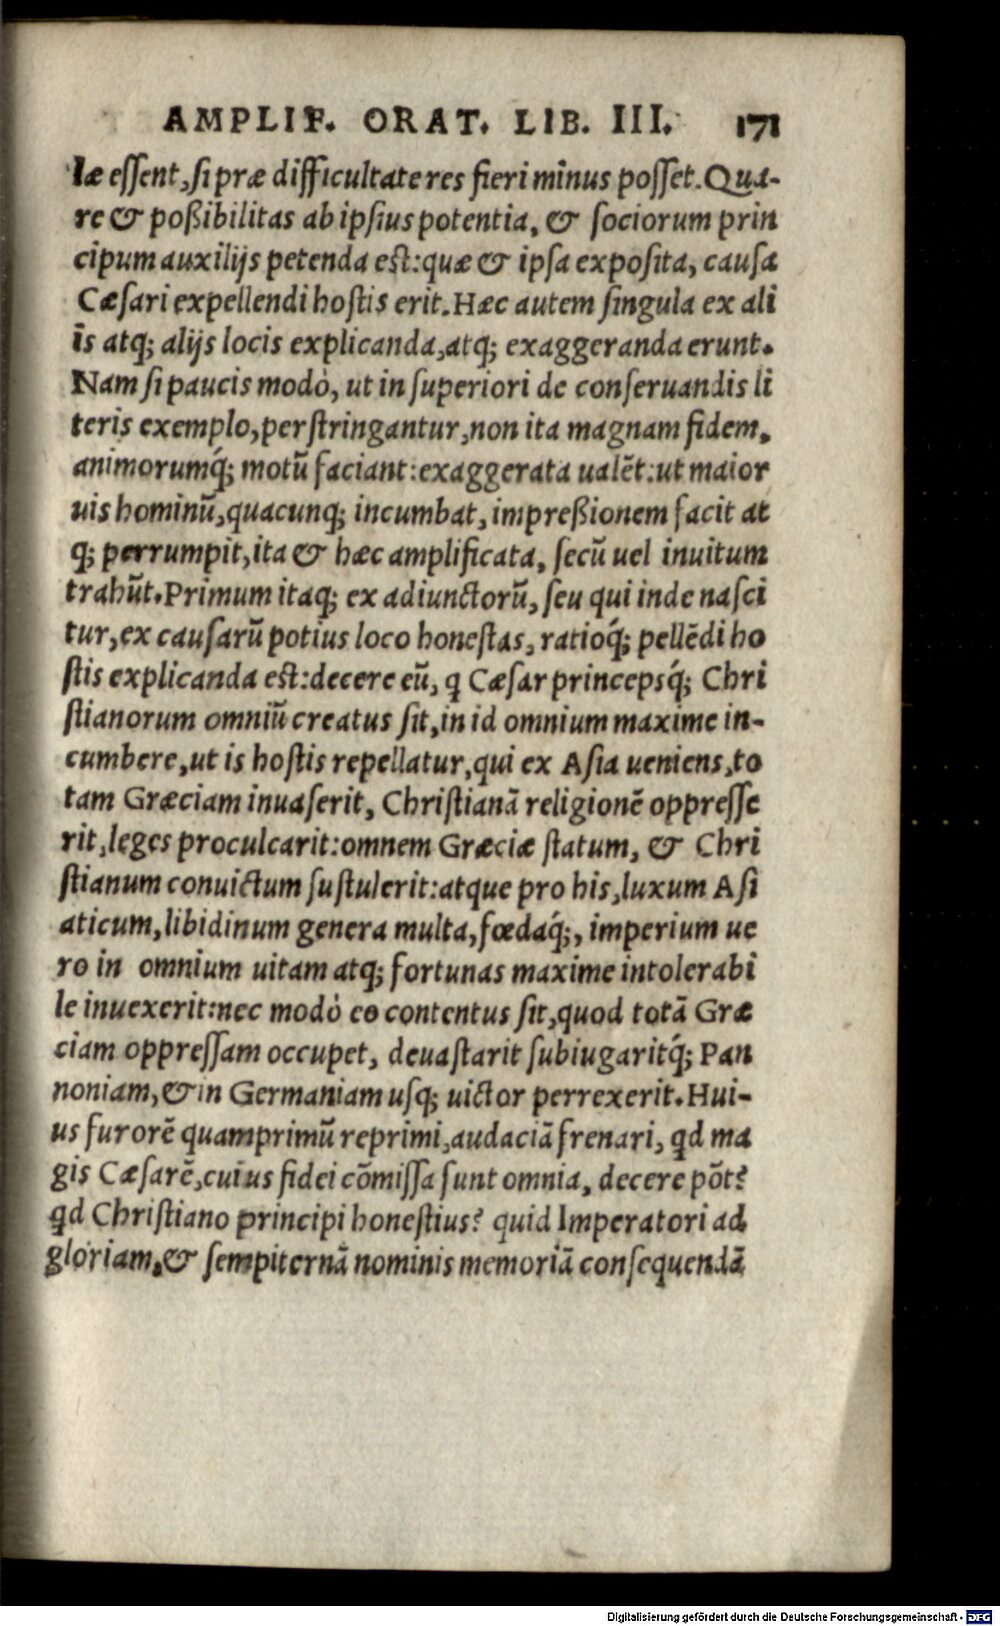 AMPLIF. ORAT. LIB. III. 171
læ essent, si præ difficultate res fieri minus posset. Qua-
re & poßibilitas ab ipsius potentia, & sociorum prin
cipum auxilijs petenda est: quæ & ipsa exposita, causa
Cæsari expellendi hostis erit. Hæc autem singula ex ali
is atq; alijs locis explicanda, atq; exaggeranda erunt.
Nam si paucis modò, ut in superiori de conseruandis li
teris exemplo, perstringantur, non ita magnam fidem,
animorumq́; motū faciant: exaggerata ualēt: ut maior
uis hominū, quacunq; incumbat, impreßionem facit at
q; perrumpit, ita & hæc amplificata, secū uel inuitum
trahūt. Primum itaq; ex adiunctorū, seu qui inde nasci
tur, ex causarū potius loco honestas, ratioq́; pellēdi ho
stis explicanda est: decere eū, q Cæsar princepsq́; Chri
stianorum omniū creatus sit, in id omnium maxime in-
cumbere, ut is hostis repellatur, qui ex Asia ueniens, to
tam Græciam inuaserit, Christianā religionē oppresse
rit, leges proculcarit: omnem Græciæ statum, & Chri
stianum conuictum sustulerit: atque pro his, luxum Asi
aticum, libidinum genera multa, fœdaq́;, imperium ue
ro in omnium uitam atq; fortunas maxime intolerabi
le inuexerit: nec modò eo contentus sit, quod totā Græ
ciam oppressam occupet, deuastarit subiugaritq́; Pan
noniam, & in Germaniam usq; uictor perrexerit. Hui-
us furorē quamprimū reprimi, audaciā frenari, qd ma
gis Cæsarē, cuius fidei cōmissa sunt omnia, decere pōt?
qd Christiano principi honestius? quid Imperatori ad
gloriam, & sempiternā nominis memoriā consequendā
Digitalisierung gefördert durch die Deutsche Forschungsgemeinschaft - DFG